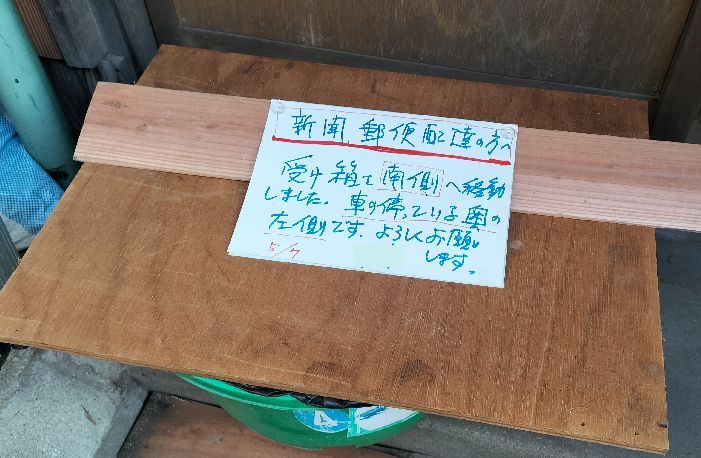 新聞、郵便配達の方へ
受け箱を南側へ移動
しました。車の停っている奥の
左側です。よろしくお願い
します。
5/7
4